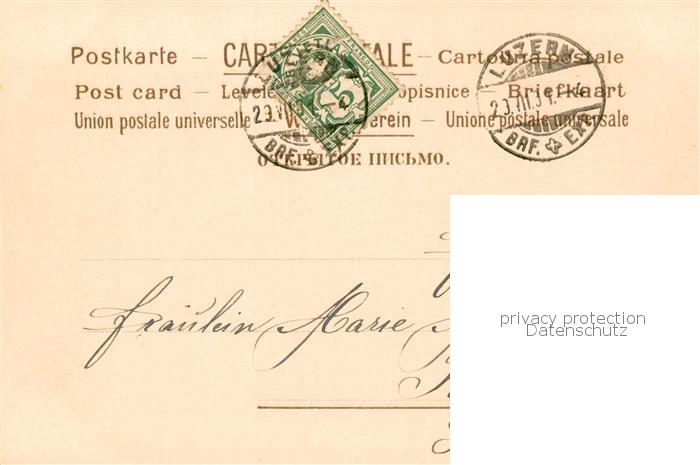 Postkarte — CARTE POSTALE — Cartolina postale
Post card — Levelező — Dopisnice — Briefkaart
Union postale universelle — Weltpostverein — Unione postale universale
ОТКРЫТОЕ ПИСЬМО.
HELVETIA
FRANCO
5
LUZERN
BRF. & EXP.
LUZERN
BRF. & EXP.
Fräulein Marie
privacy protection
Datenschutz